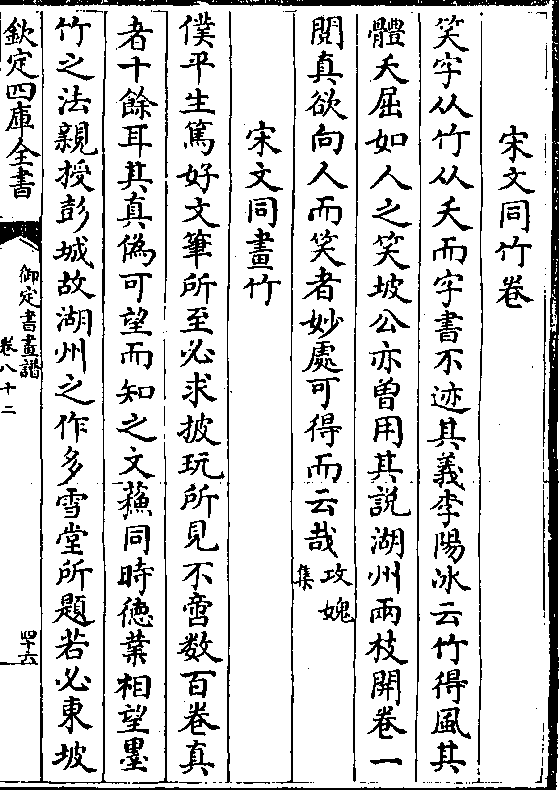 宋文同竹卷
笑字从竹从夭而字書不迹其義李陽冰云竹得風其
體夭屈如人之笑坡公亦曽用其説湖州兩枝開卷一
閱真欲向人而笑者妙處可得而云哉攻媿集
宋文同畫竹
僕平生篤好文筆所至必求披玩所見不啻数百卷真
者十餘耳其真偽可望而知之文蘇同時徳業相望墨
竹之法親授彭城故湖州之作多雪堂所題若必東坡
欽定四庫全書
御定書畫譜
卷八十二
四十六